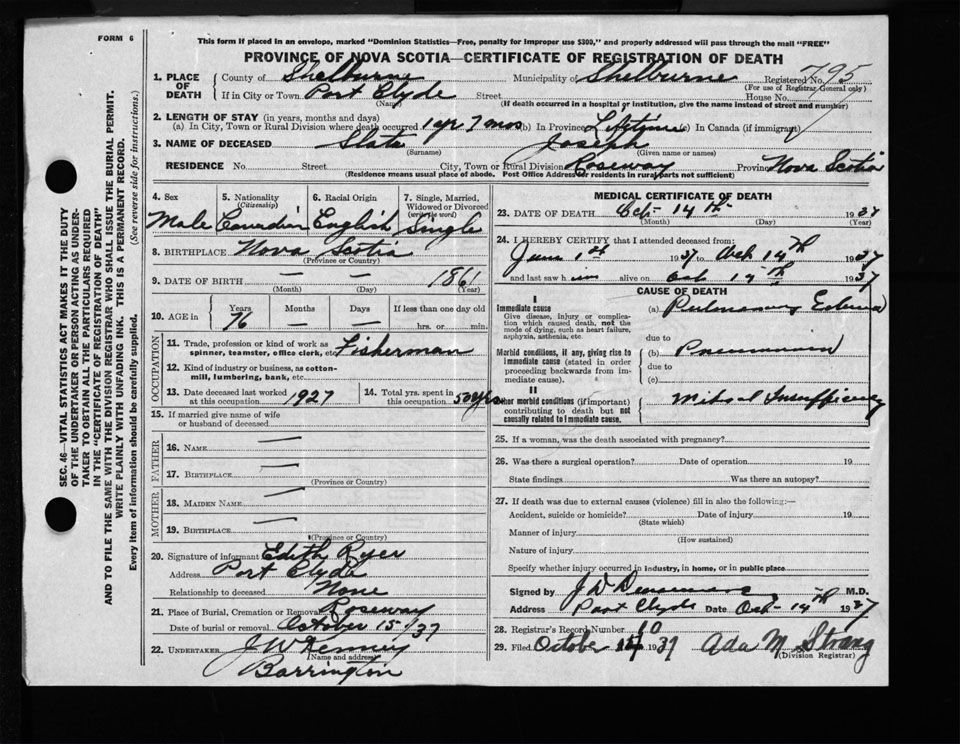 FORM 6
This form if placed in an envelope, marked "Dominion Statistics—Free, penalty for improper use $300," and properly addressed will pass through the mail "FREE"
PROVINCE OF NOVA SCOTIA—CERTIFICATE OF REGISTRATION OF DEATH
SEC. 46—VITAL STATISTICS ACT MAKES IT THE DUTY
OF THE UNDERTAKER OR PERSON ACTING AS UNDER-
TAKER TO OBTAIN ALL THE PARTICULARS REQUIRED
IN THE "CERTIFICATE OF REGISTRATION OF DEATH"
AND TO FILE THE SAME WITH THE DIVISION REGISTRAR WHO SHALL ISSUE THE BURIAL PERMIT.
WRITE PLAINLY WITH UNFADING INK. THIS IS A PERMANENT RECORD.
Every item of information should be carefully supplied. (See reverse side for instructions.)
1. PLACE OF DEATH County of Shelburne Municipality of Shelburne Registered No. 795
(For use of Registrar General only)
If in City or Town Port Clyde Street House No.
(Name) (If death occurred in a hospital or institution, give the name instead of street and number)
2. LENGTH OF STAY (in years, months and days)
(a) In City, Town or Rural Division where death occurred 1 yr 7 mos (b) In Province Lifetime (c) In Canada (if immigrant)
3. NAME OF DECEASED Slate Joseph
(Surname) (Given name or names)
RESIDENCE No. Street City, Town or Rural Division Roseway Province Nova Scotia
(Residence means usual place of abode. Post Office Address for residents in rural parts not sufficient)
4. Sex 5. Nationality (Citizenship) 6. Racial Origin 7. Single, Married, Widowed or Divorced (write the word)
Male Canadian English Single
8. BIRTHPLACE Nova Scotia
(Province or Country)
9. DATE OF BIRTH — — 1861
(Month) (Day) (Year)
10. AGE in Years Months Days If less than one day old
76 — — hrs. or min.
OCCUPATION
11. Trade, profession or kind of work as spinner, teamster, office clerk, etc. Fisherman
12. Kind of industry or business, as cotton-mill, lumbering, bank, etc.
13. Date deceased last worked at this occupation 1927 14. Total yrs. spent in this occupation 50 yrs
15. If married give name of wife or husband of deceased
FATHER
16. NAME —
17. BIRTHPLACE —
(Province or Country)
MOTHER
18. MAIDEN NAME —
19. BIRTHPLACE —
(Province or Country)
20. Signature of informant Edith Ryer
Address Port Clyde
Relationship to deceased None
21. Place of Burial, Cremation or Removal Roseway
Date of burial or removal October 15/37
22. UNDERTAKER J W Kenney
(Name and address)
Barrington
MEDICAL CERTIFICATE OF DEATH
23. DATE OF DEATH Oct- 14th 1937
(Month) (Day) (Year)
24. I HEREBY CERTIFY that I attended deceased from:
June 1st 1937 to Oct 14th 1937
and last saw him alive on Oct 1937
CAUSE OF DEATH
I
Immediate cause (a) Pulmonary
Give disease, injury or complication which caused death, not the mode of dying, such as heart failure, asphyxia, asthenia, etc.
due to
Morbid conditions, if any, giving rise to immediate cause (stated in order proceeding backwards from immediate cause). (b) Pneumonia
due to
(c)
II
Other morbid conditions (if important) contributing to death but not causally related to immediate cause. Mitral Insufficiency
25. If a woman, was the death associated with pregnancy?
26. Was there a surgical operation? Date of operation 19
State findings Was there an autopsy?
27. If death was due to external causes (violence) fill in also the following:—
Accident, suicide or homicide? Date of injury 19
(State which)
Manner of injury
(How sustained)
Nature of injury
Specify whether injury occurred in industry, in home, or in public place
Signed by J D M.D.
Address Port Clyde Date Oct- 14th 1937
28. Registrar's Record Number 10
29. Filed October 1937 Ada M Strang
(Division Registrar)